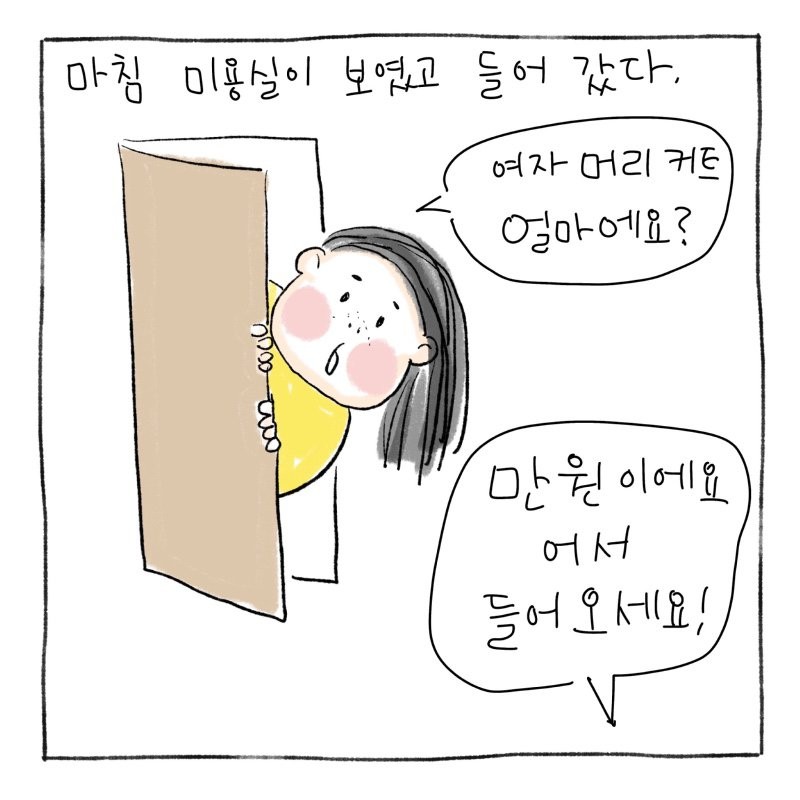 마침 미용실이 보였고 들어 갔다.
여자 머리 커트
얼마에요?
만원이에요
어서
들어오세요!